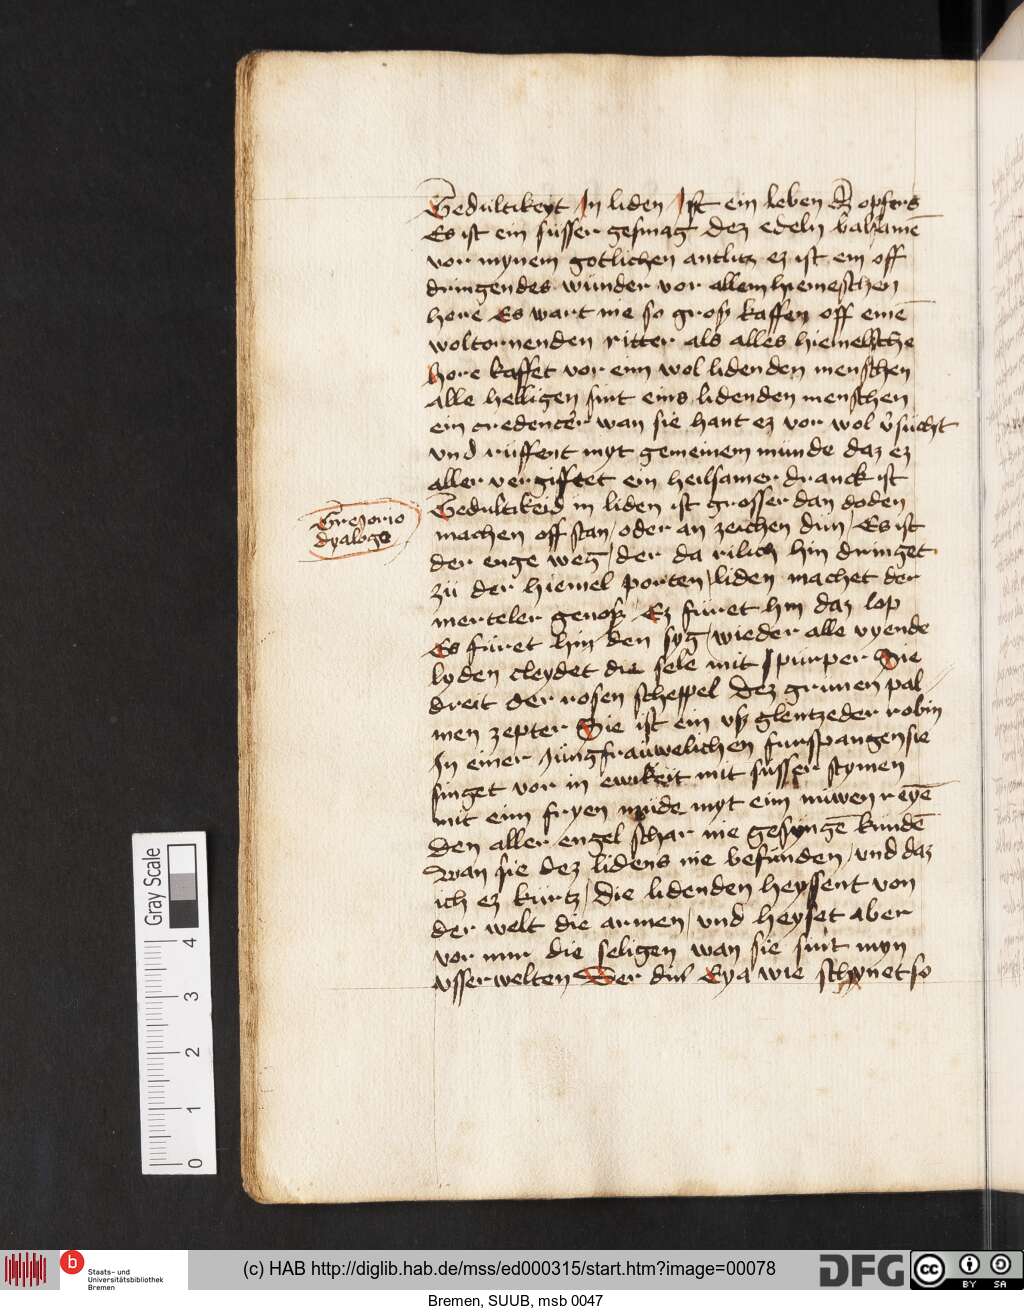 Gedultikeyt In liden Ist ein leben dz opfers
Es ist ein süsser gesmag dez edeln balsamē
vor mynem gotlichen antlitz ez ist ein off
dringendes wunder vor allem hiemeschen
here Es wart nie so grosz kaffen off einē
woltornenden ritter als alles hiemelsche
here kaffet vor eim wol lidenden menschen
alle heiligen sint eins lidenden menschen
ein credencer wan sie hant ez vor wol v̉sücht
und rüffent myt gemeinem munde daz ez
aller vergifftet ein heilsamer dranck ist
Gedultikeid in liden ist grosser dan doden
machen off stan / oder an zeichen dün / Es ist
der enge weg / der da rilich hin dringet
zü der hiemel porten / liden machet der
merteler genosz / Ez füret hin daz lop
Es füret hin den syg / wieder alle vyende
lyden cleydet die sele mit purper Sie
dreit der rosen scheppel dez grunen pal
men zepter Sie ist ein usz glentzeder robin
In einer Jungfrauwelichen furspangen sie
singet vor in ewikeit mit süsser stymen
mit eim fryen mude myt eim nüwen reyē
den aller engel schar nie gesyngē kundē
wan sie dez lidens nie befunden / und daz
ich ez kürtz / die lidenden heyssent von
der welt die armen / und heyset aber
vor mir die seligen wan sie sint myn
usserwelten Der din̉ Eya wie schynet so
Gregorio
dyalogo
Gray Scale
4
3
2
1
0
b
Staats- und
Universitätsbibliothek
Bremen
(c) HAB http://diglib.hab.de/mss/ed000315/start.htm?image=00078
DFG
cc
BY SA
Bremen, SUUB, msb 0047